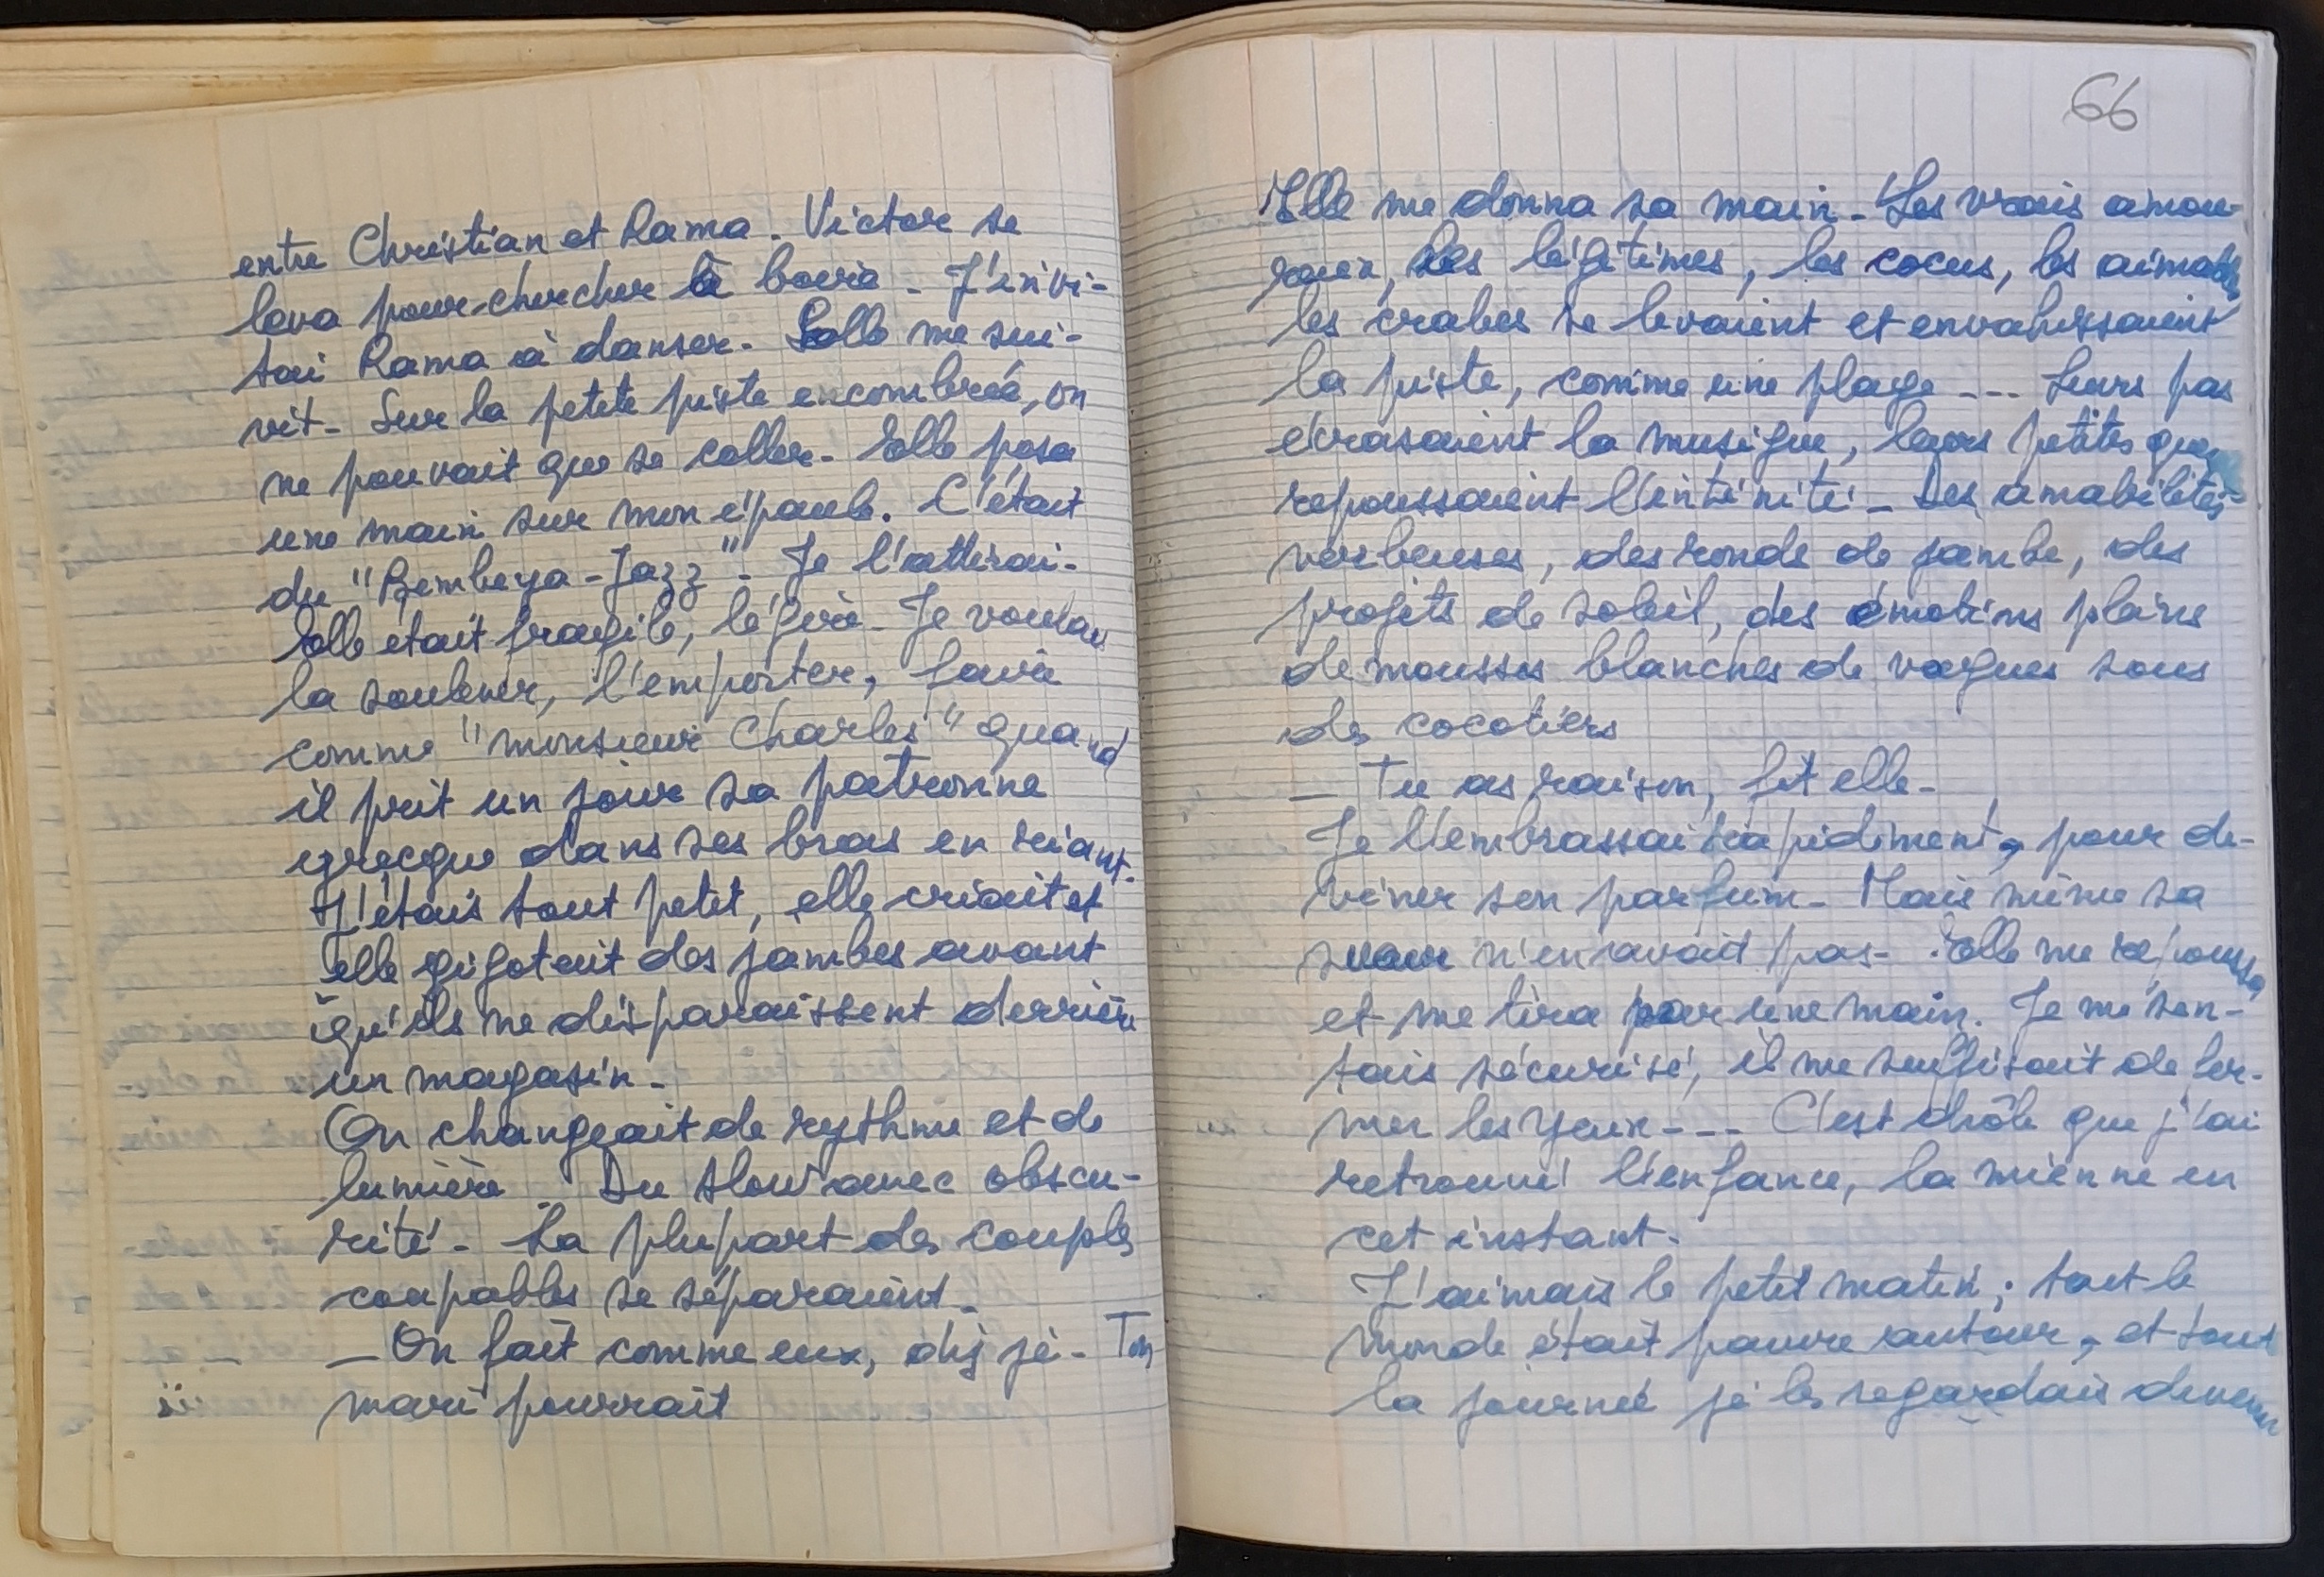 entre Christian et Rama. Victor se
leva pour chercher à boire - J'invi-
tai Rama à danser - Elle me sui-
vit - Sur la petite piste encombrée, on
ne pouvait que se coller - Elle posa
une main sur mon épaule. C'était
du "Bembeya-Jazz" - Je l'attirai -
Elle était fragile, légère - Je voulais
la soulever, l'emporter, fouir
comme "monsieur Charles" quand
il prit un jour sa patronne
grecque dans ses bras en riant.
J'étais tout petit, elle criait et
elle gigotait des jambes avant
qu'ils ne disparaissent derrière
un magasin -
On changeait de rythme et de
lumière - Du slow avec obscu-
rité - La plupart des couples
coupables se séparaient -
- On fait comme eux, dis je - Ton
mari pourrait
66
Elle me donna sa main - Les vrais amou-
reux, les légitimes, les cocus, les aimables
les crabes se levaient et envahissaient
la piste, comme une plage --- Leurs pas
écrasaient la musique, leurs petites
repoussaient l'intimité - Des amabilités
verbeuses, des ronds de jambe, des
projets de soleil, des émotions pleins
de mousses blanches de vagues sous
des cocotiers
- Tu as raison, fit elle -
Je l'embrassai rapidement, pour de-
viner son parfum - Mais même sa
sueur n'en avait pas - Elle me repoussa
et me tira par une main. Je me sen-
tais sécurisé, il me suffisait de fer-
mer les yeux --- C'est drôle que j'ai
retrouvé l'enfance, la mienne en
cet instant.
J'aimais le petit matin ; tout le
monde était pauvre autour, et tout
la journée je les regardais devenir